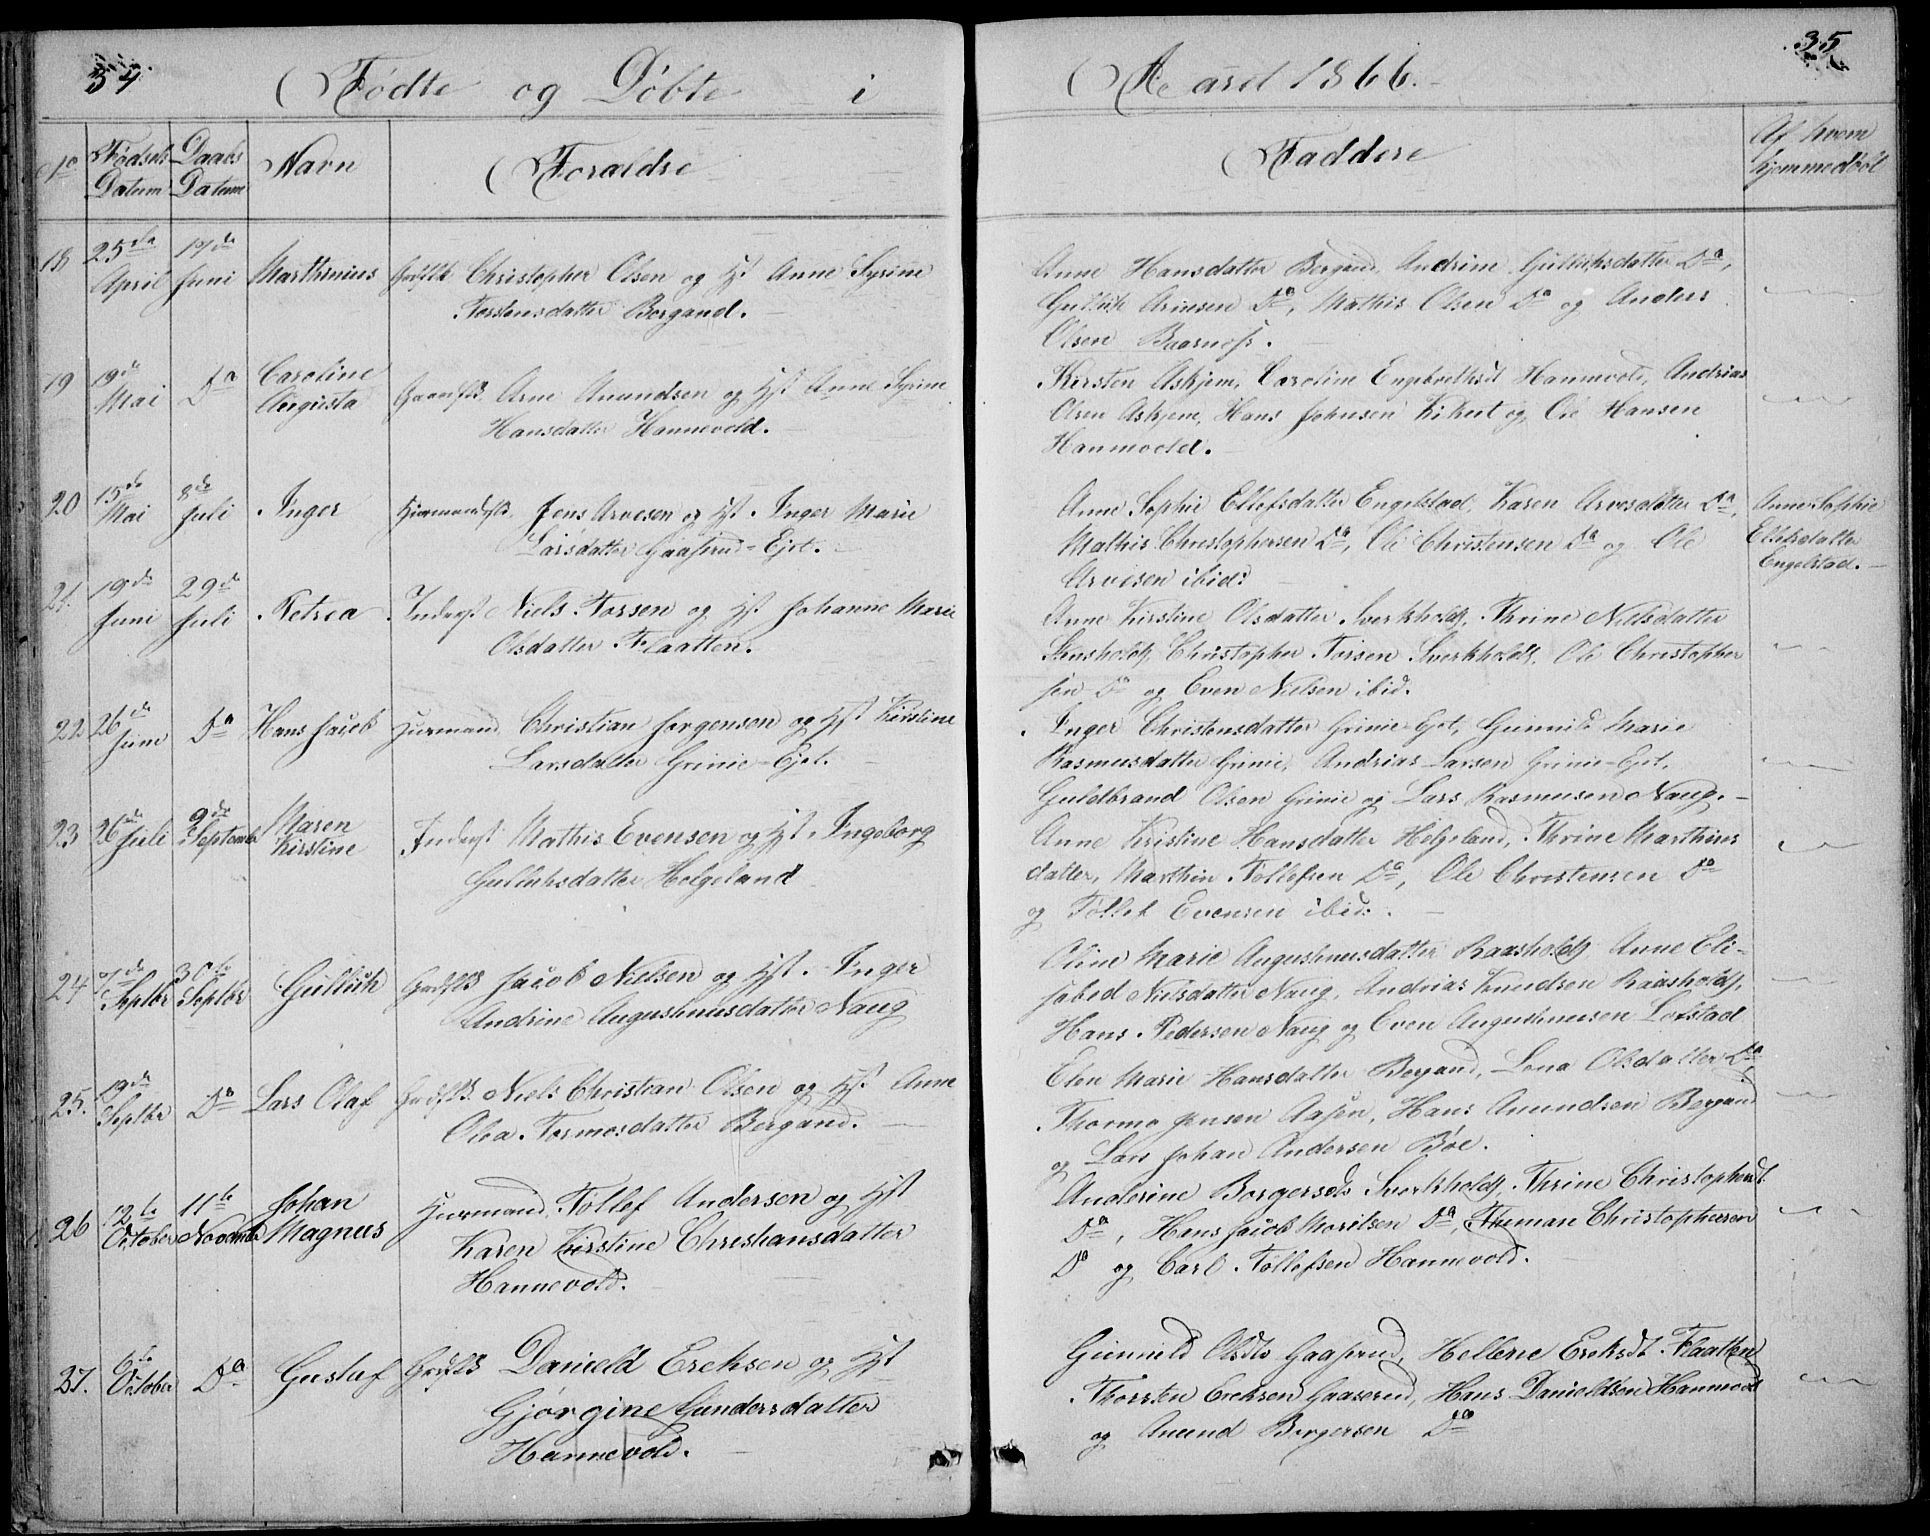 34
Fødte og Døbte i
Aaret 1866.
35
No
Fødsels Datum
Daabs Datum
Navn
Foraldre
Faddere
Af hvem hjemmedøbt
18 25de April 17de Juni Marthinius Grdslb Christopher Olsen og Hst Anne Syrine
Torstensdatter Borgand.
Anne Hansdatter Bergand, Andrine Gulliksdatter Do,
Gullik Arnesen Do, Mathis Olsen Do og Anders
Olsen Baarnes.
19 19de Mai Do Caroline Augusta Arne Anundsen og Hst Anne Syrine
Hansdatter Hannevold.
Kirsten Askjem, Caroline Hannevold, Andrias
Olsen Askjem, Hans Johnsen og Ole Hansen
Hannevold.
20 15de Mai 8de Juli Inger Huusmandsfolk Jens Arvesen og Hst. Inger Marie
Larsdatter Gaaserud-Ejet.
Anne Sophie Ellefsdatter Engelstad, Karen Arvesdatter Do,
Mathis Christophersen Do, Ole Christensen Do og Ole
Arvesen ibid:
Anne Sophie
Ellefsdatter
Engelstad.
21. 19de Juni 29de Juli Petrea Inderst Niels Torsen og Hst Johanne Marie
Olsdatter Flaatten.
Anne Kirstine Olsdatter Sverkholdt, Thrine Nielsdatter
Christopher Torsen Sverkholdt, Ole Christopher
sen Do og Even Nielsen ibid.
22 26de Juni Do Hans Jacob Huusmand Christian Jorgensen og Hst Kirstine
Larsdatter Grinie-Ejet.
Inger Christensdatter Grinie-Ejet, Gunnild Marie
Rasmusdatter Grinie, Andrias Larsen Grinie-Ejet,
Guldbrand Olsen Grinie og Lars Rasmusen Naug.
23 26de Juli 9de September Maren Kirstine Inderst Mathis Evensen og Hst. Ingeborg
Gulliksdatter Helgeland
Anne Kristine Hansdatter Helgeland, Thrine Marthins
datter, Marthin Tollefsen Do, Ole Christensen Do
og Tollef Evensen ibid:
24 7de Septbr 30te Septbr Gullik Grdfolk Jacob Nielsen og Hst. Inger
Andrine Augustinusdatter Naug
Oline Marie Augustinusdatter Raasholdt, Anne Eli-
sabed Nielsdatter Naug, Andrias Knudsen Raasholdt,
Hans Pedersen Naug og Even Augustinusen Lofstad
25. 19de Septbr Do Lars Olaf Grdfolk Niels Christian Olsen og Hst Anne
Olea Tormosdatter Bergand.
Elen Marie Hansdatter Bergand, Lena Olsdatter Do
Thormo Jensen Aasen, Hans Anundsen Bergand
og Lars Johan Andersen Böe.
26 12te October 11te November Johan Magnus Huusmand Tollef Andersen og Hst
Karen Kirstine Christiansdatter
Hannevold.
Anderine Borgersdt Sverkholdt, Thrine Christophersdt
Do, Hans Jacob Moritsen Do, Truman Christophersen
Do og Carl Tollefsen Hannevold.
27. 6te October Do Gustaf Grdfolk Danield Ereksen og Hst
Gjørgine Gundersdatter
Hannevold.
Gunnild Olsdt Gaaserud, Hellene Ereksdt Flaatten
Thorsten Ereksen Gaaserud, Hans Danieldsen Hannevold
og Anund Borgersen Do